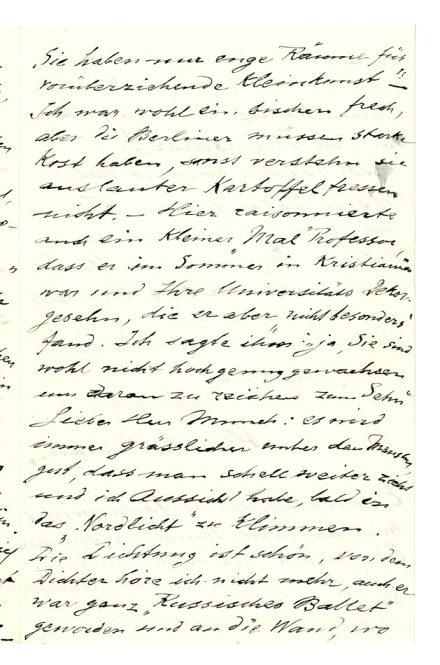 Sie haben nur enge Räume für
vorüberziehende Kleinkunst —
Ich war wohl ein bischen frech,
aber die Berliner müssen starke
Kost haben, sonst verstehn sie
aus lauter Kartoffelfressen
nicht. — Hier raisonnierte
auch ein kleiner "Mal"Professor
dass er im Sommer in Kristiania
war und Ihre Universitäts Dekor.
gesehn, die er aber nicht besonders
fand. Ich sagte ihm: ja, Sie sind
wohl nicht hoch genug gewachsen
um daran zu reichen zum Sehn"
Lieber Herr Munch: es wird
immer grässlicher unter den Menschen,
gut, dass man schell weiter zieht
und ich Aussicht habe, bald in
das "Nordlicht" zu klimmen.
Die Dichtung ist schön, von dem
Dichter höre ich nicht mehr, auch er
war ganz "Russisches Ballet"
geworden und an die Wand, wo